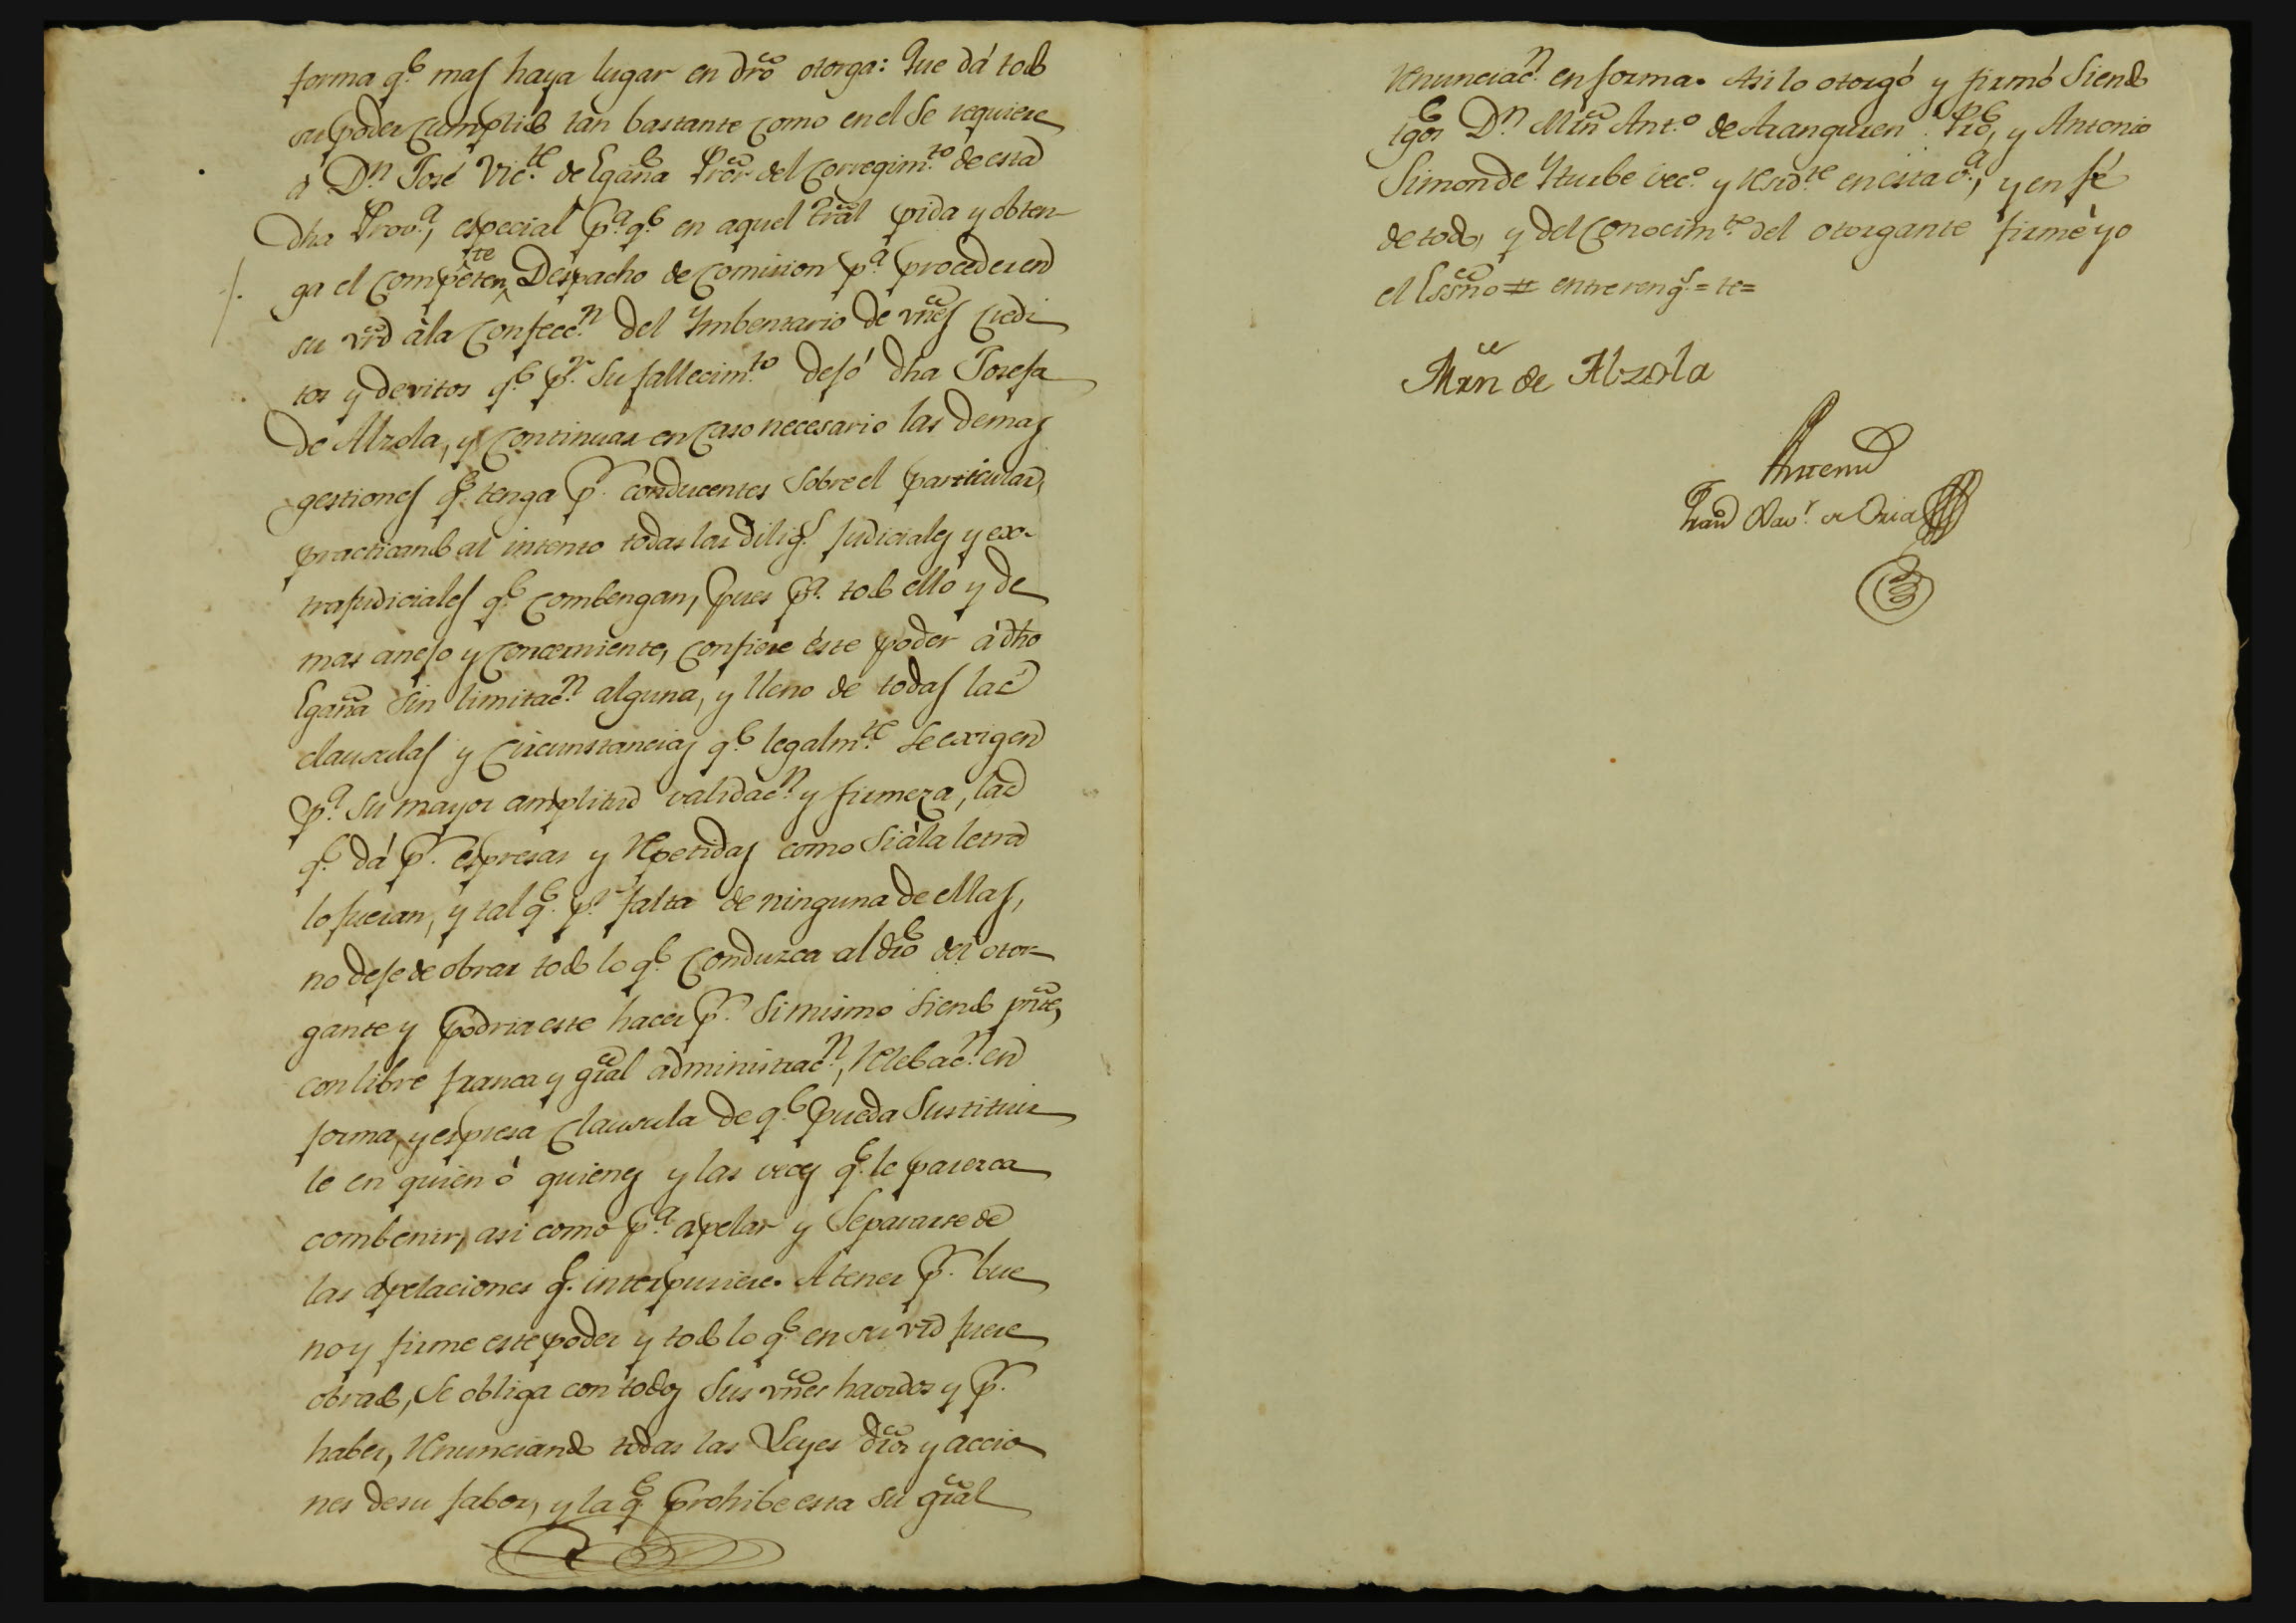 forma q.e mas haya lugar en dro otorga: Que dá todo
su poder cumplido tan bastante como en el se requiere
á D.n José Vic.te de Egaña Prõr del Corregim.to de esta
dha Prov.a, especial p.a q.e en aquel trãl pida y obten-
ga el competen^te Despacho de Comision p.a proceder en
su vrd á la Confecc.n del Ymbentario de vñes credi
tos y devitos q.e p.r su fallecim.to dejó dha Josefa
de Alzola, y continuar en caso necesario las demas
gestiones q.e tenga p.r conducentes sobre el particular,
practicando al intento todas las dilig.s judiciales y ex-
trajudiciales q.e combengan, pues p.a todo ello y de
mas anejo y concerniente, confiere éste poder á dho
Egaña sin limitac.n alguna, y lleno de todas las
clausulas y circunstancias q.e legalm.te se exigen
p.a su mayor amplitud validac.n y firmeza, las
q.e dá p.r espresas y repetidas como si á la letra
lo fueran, y tal q.e p.r falta de ninguna de ellas,
no deje de obrar todo lo q.e conduzca al dro del otor-
gante y podria este hacer p.r si mismo siendo pñte,
con libre franca y grãl administrac.n, relebac.n en
forma, y espresa clausula de q.e pueda sustituir
le en quien ó quienes y las veces q.e le parezca
combenir, asi como p.a apelar y separarse de
las apelaciones q.e interpusiere. A tener p.r bue
no y firme este poder y todo lo q.e en su vrd fuere
obrado, se obliga con todos sus vñes havidos y p.r
haber, renunciando todas las Leyes dros y accio
nes de su fabor, y la q.e prohibe esta su grãl
renunciac.n en forma. Asi lo otorgó y firmó siendo
tgos D.n Mrñ Ant.o de Aranguren Pro, y Antonio
Simon de Yturbe vec.o y resid.te en esta v.a, y en fé
de todo, y del conocim.to del otorgante firmé yo
el Essño # entrereng.s = te =
Mrñ de Alzola
Antemi